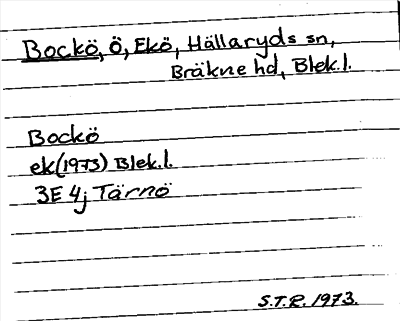 Bockö, Ö, Ekö, Hällaryds sn,
Bräkne hd, Blek.l.
Bockö
ek(1973) Blek.l.
3E 4j Tärnö
S.T.R. 1973.